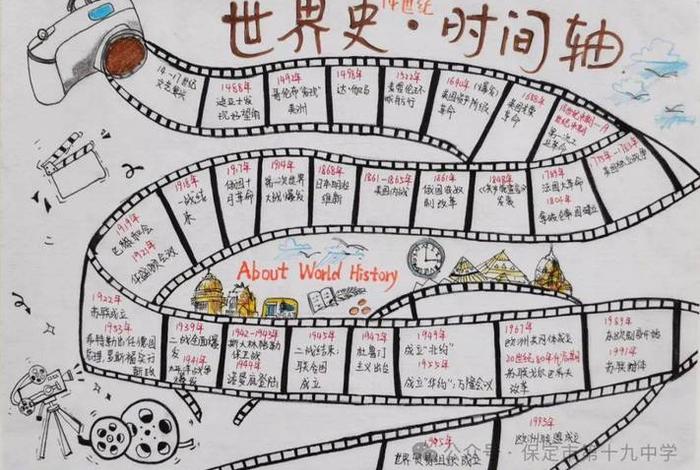 世界史·时间轴
14世纪
14-17世纪
文艺复兴
1488年
迪亚士发
现好望角
1492年
哥伦布"发现"
美洲
1498年
达·伽马
1522年
麦哲伦环
球航行
1640年（爆发）
英国资产阶级
革命
1688年
英国光荣
革命
第一次工
业革命
1775年-1783年
美国独立战争
1789年
法国大革命
1804年
1848年
发表
1861年
俄国农奴
制改革
1861-1865年
美国内战
1868年
日本明治
维新
1914年
第一次世界
大战爆发
1917年
俄国十
月革命
1918年
一战结
束
1919年
巴黎和会
1921年
华盛顿会议
About World History
1922年
苏联成立
1933年
希特勒出任德国
总理，罗斯福实行
新政
1939年
二战全面爆
发
1941年
太平洋战争
爆发
1942-1943年
斯大林格勒
保卫战
1944年
诺曼底登陆
1945年
二战结束；
联合国
成立
1947年
杜鲁门
主义出台
1949年
成立"北约"
1955年
成立"华约"；万隆会议
1967年
欧洲共同体成立
20世纪80年代后期
苏联戈尔巴乔夫
改革
1989年
东欧剧变开始
1991年
苏联解体
1993年
欧洲联盟成立
1995年
世界贸易组织成立
公众号·保定市第十九中学